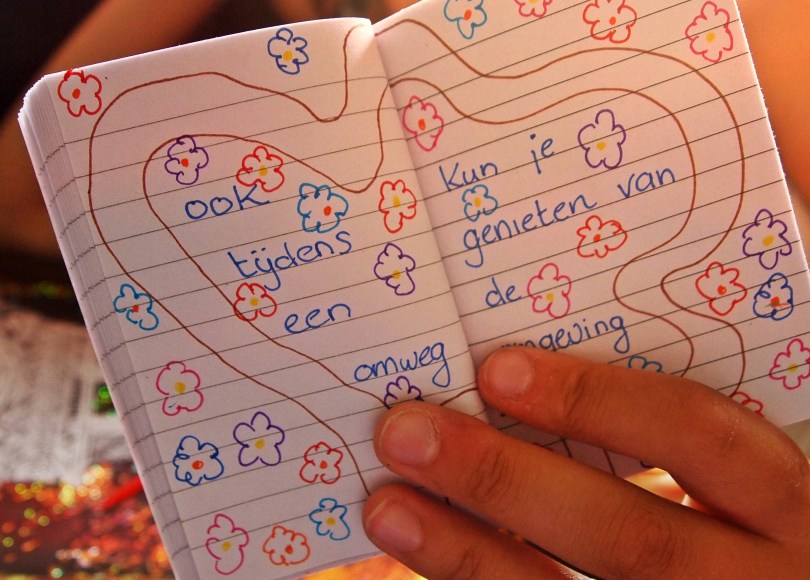 ook
tijdens
een
omweg
Kun je
genieten van
de
omgeving